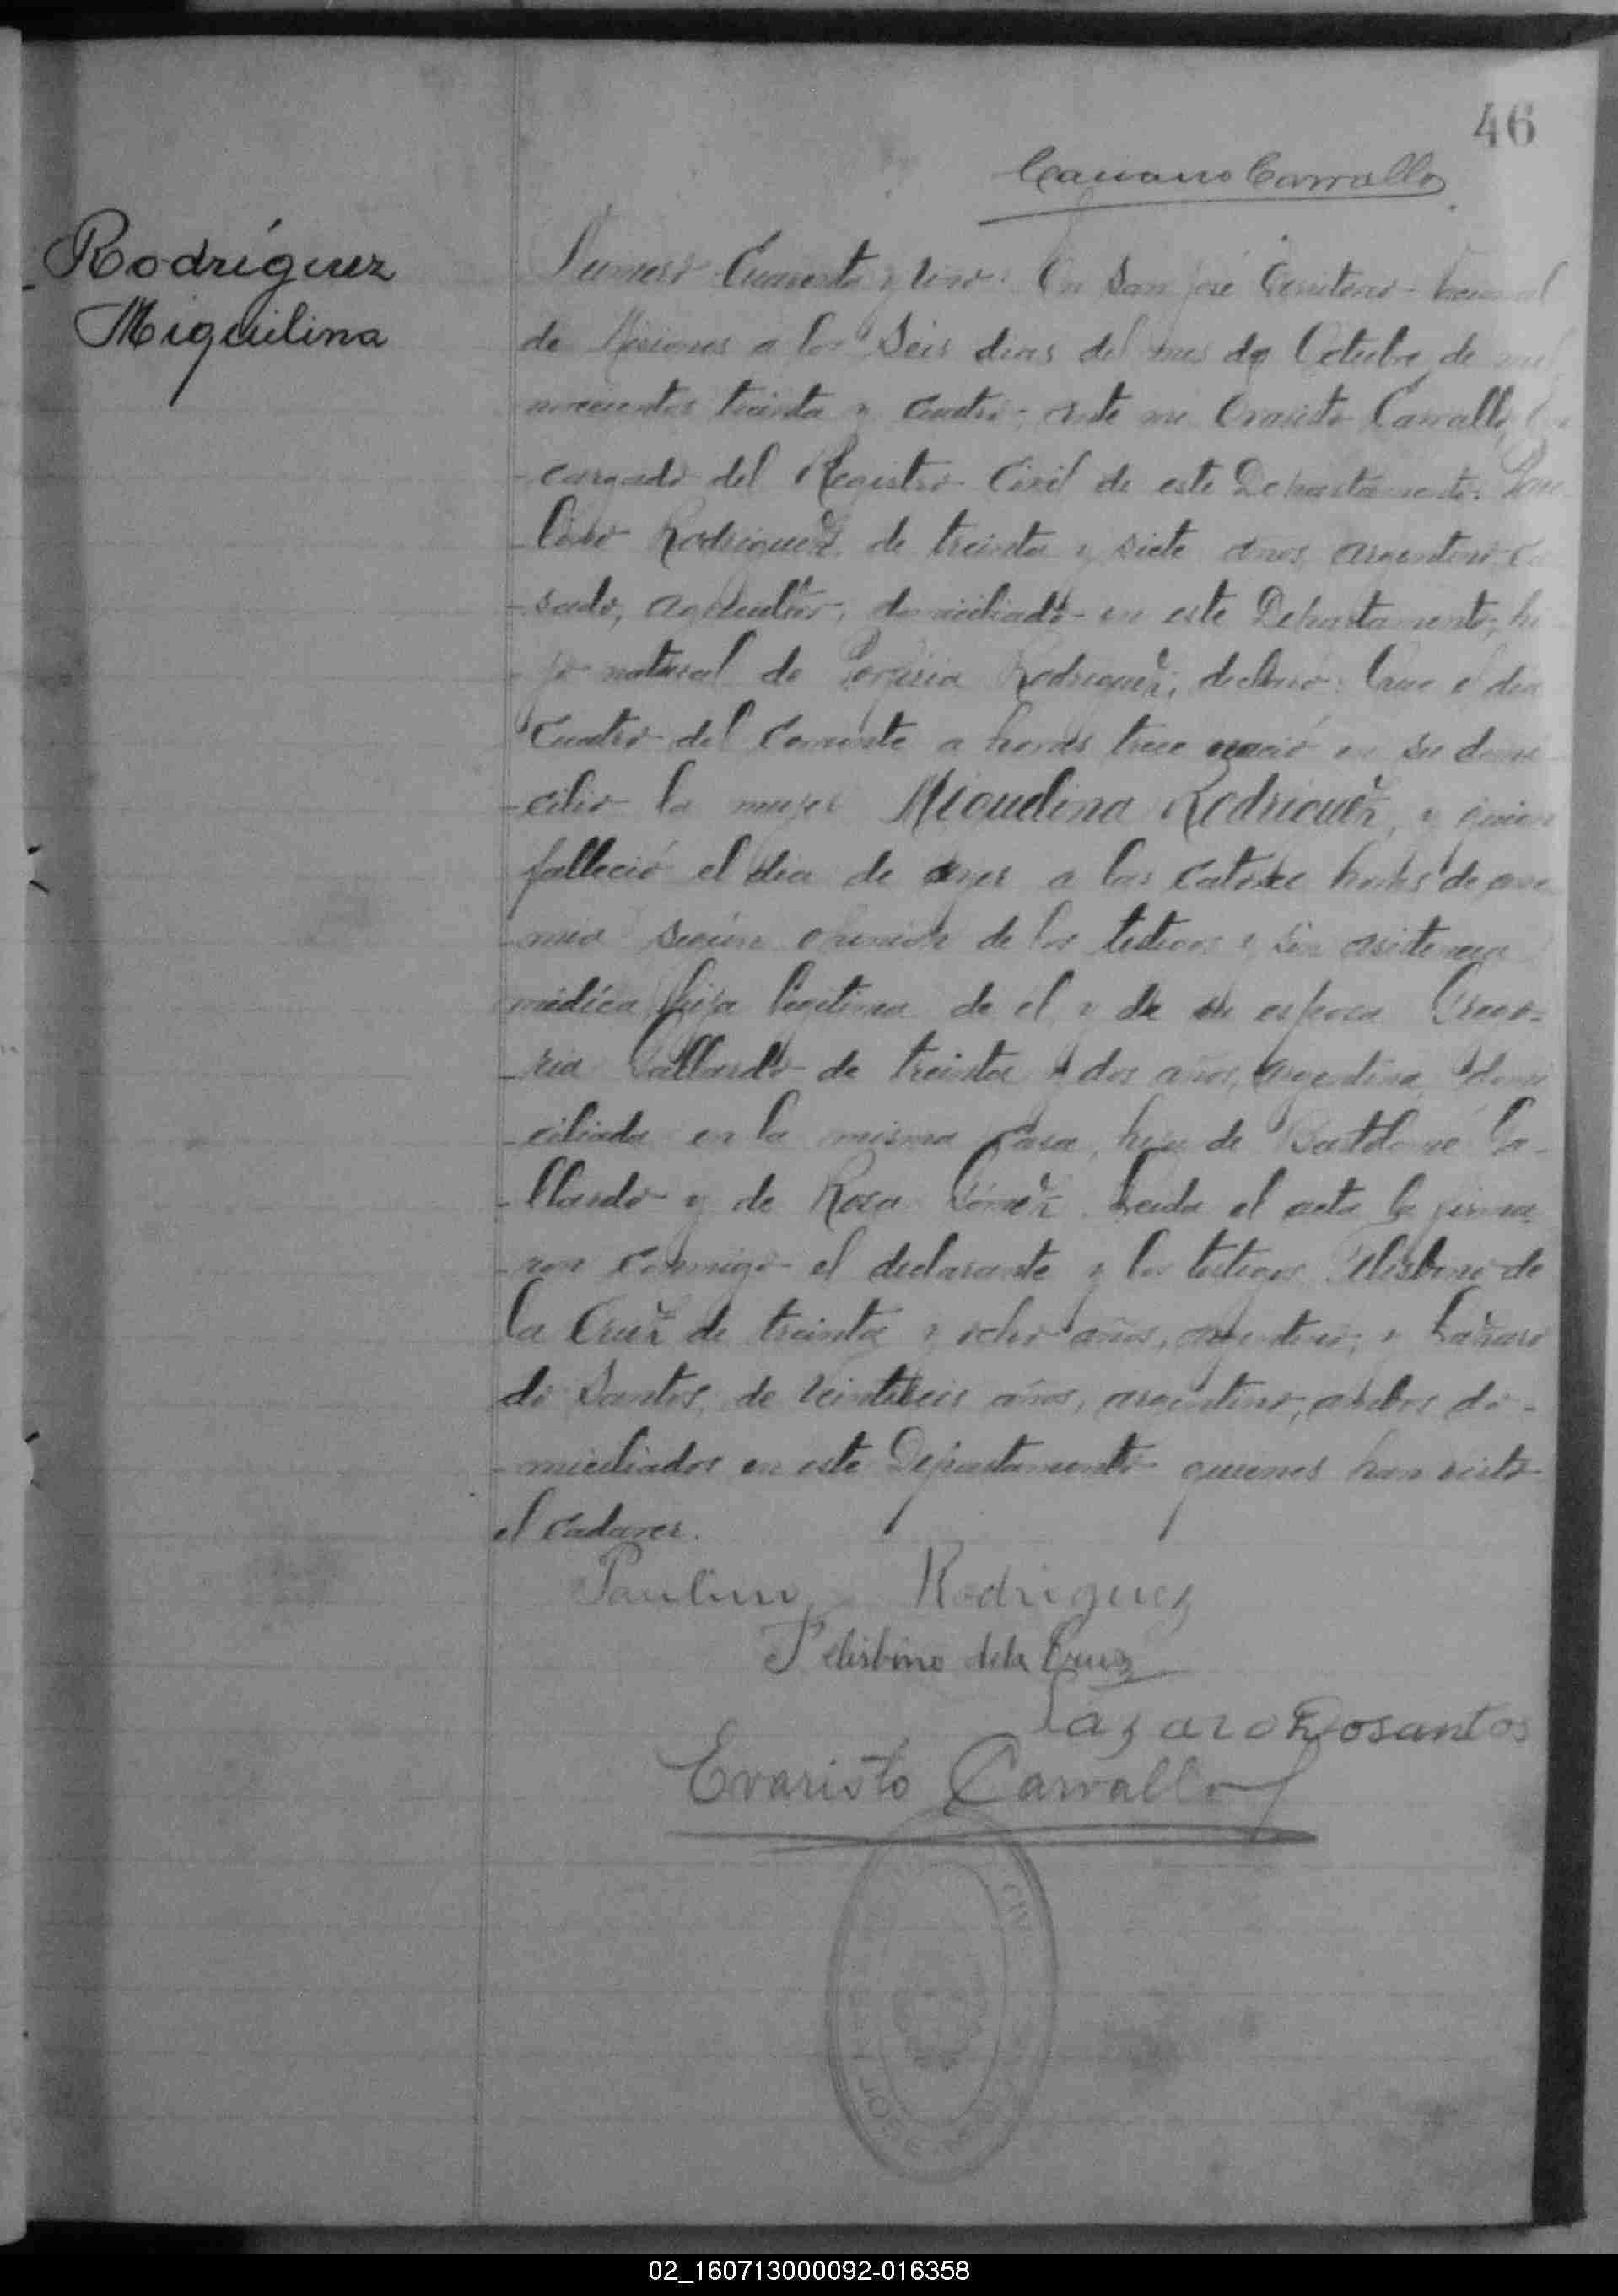 46
Carvallo
Rodríguez
Miguilina
Numero Cuarenta y uno. En San José Territorio Nacional
de Misiones a los Seis dias del mes de Octubre de mil
novecientos treinta y Cuatro, ante mi Evaristo Carvallo, En
cargado del Registro Civil de este Departamento: Pau
lino Rodriguez, de treinta y siete años, argentino, ca
sado, agricultor, domiciliado en este Departamento, hi
jo natural de Rodriguez, declaró: Que el dia
Cuatro del Corriente a horas trece nació en su domi
cilio la mujer Miguelina Rodriguez, y quien
falleció el dia de ayer a las catorce horas de ane
mia según opinion de los testigos y sin asistencia
médica, hija legitima de el y de su esposa Grego-
ria Gallardo de treinta y dos años, argentina, domi
ciliada en la misma casa, hija de Bartolomé Ga-
llardo y de Rosa Gómez. Leida el acta la firma
ron conmigo el declarante y los testigos Felisbino de
la Cruz de treinta y ocho años, argentino, y Lazaro
do Santos, de veintiseis años, argentino, ambos do-
miciliados en este Departamento quienes han visto
el cadaver.
Paulino Rodriguez
Felisbino dela Cruz
Lazaro Dosantos
Evaristo Carvallo
02_160713000092-016358